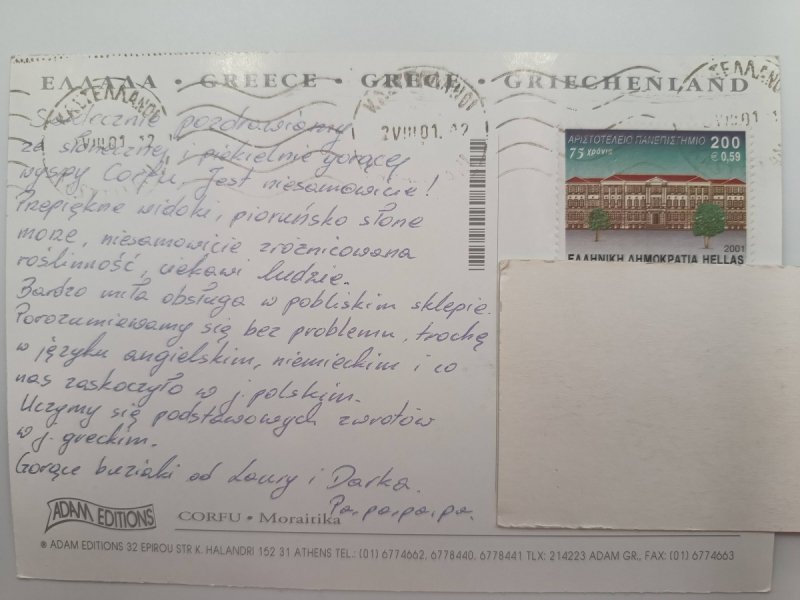 ΕΛΛΑΔΑ • GREECE • GRECE • GRIECHENLAND
2VIII01
2VIII01
ΑΡΙΣΤΟΤΕΛΕΙΟ ΠΑΝΕΠΙΣΤΗΜΙΟ 200
75 χρόνια € 0,59
2001
ΕΛΛΗΝΙΚΗ ΔΗΜΟΚΡΑΤΙΑ HELLAS
Serdecznie pozdrawiamy
ze słonecznej i piekielnie gorącej
wyspy Corfu. Jest niesamowicie!
Przepiękne widoki, pioruńsko słone
morze, niesamowicie zróżnicowana
roślinność, ciekawi ludzie.
Bardzo miła obsługa w pobliskim sklepie.
Porozumiewamy się bez problemu, trochę
w języku angielskim, niemieckim i co
nas zaskoczyło w j. polskim.
Uczymy się podstawowych zwrotów
w j. greckim.
Gorące buziaki od Laury i Darka.
Pa, pa, pa, pa.
ADAM EDITIONS
CORFU • Moraitika
® ADAM EDITIONS 32 EPIROU STR K. HALANDRI 152 31 ATHENS TEL.: (01) 6774662, 6778440, 6778441 TLX: 214223 ADAM GR., FAX: (01) 6774663